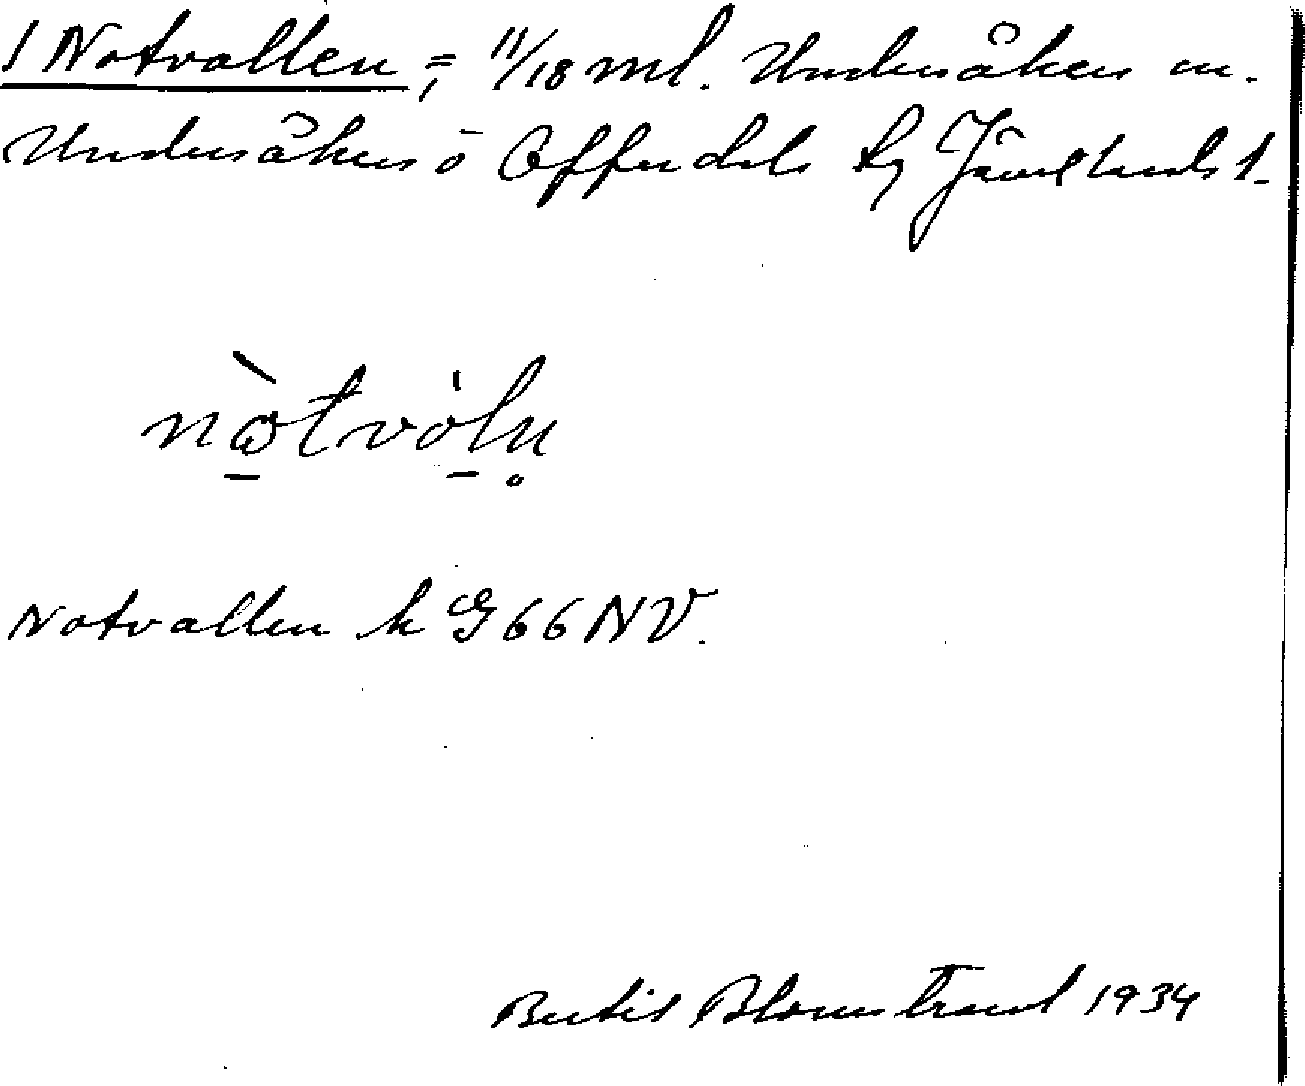 1 Notvallen, = 11/18 ml. Undersåkers sn.
Undersåkers o Offerdals tg Jämtlands l.
nòtvòln̥
Notvallen k G 66 NV.
Bertil Blomstrand 1934